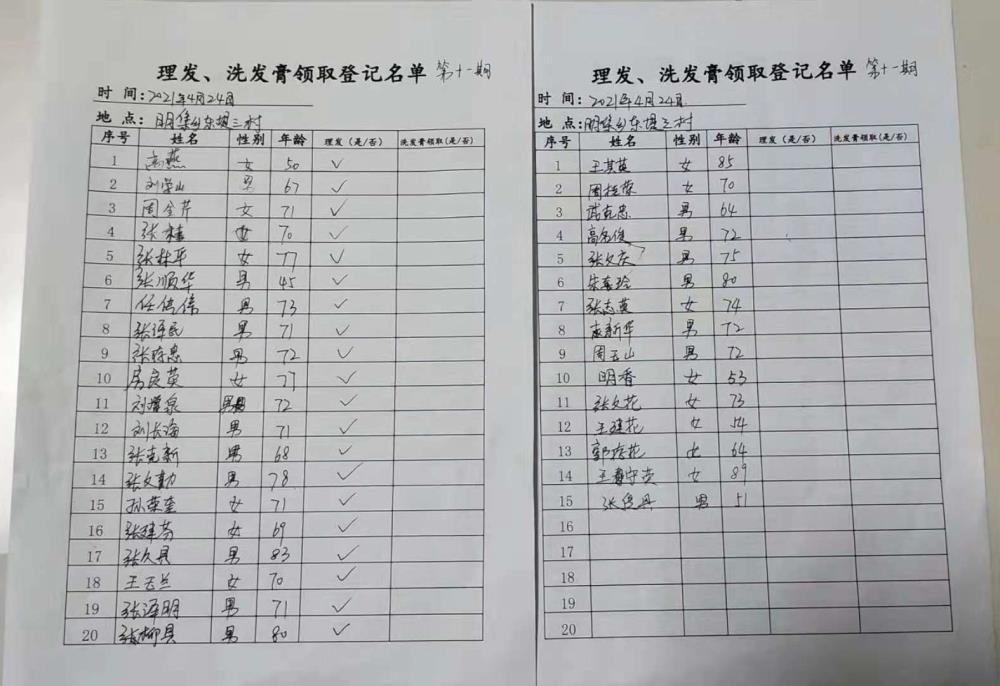 理发、洗发膏领取登记名单 第十一期
时 间：2021年4月24日
地 点：明集乡东堤三村
序号 姓名 性别 年龄 理发（是/否） 洗发膏领取(是/否)
1 高燕 女 50 ✓
2 刘学山 男 67 ✓
3 周全芹 女 71 ✓
4 张桂 女 70 ✓
5 张林平 女 77 ✓
6 张顺华 男 45 ✓
7 任信伟 男 73 ✓
8 张泽民 男 71 ✓
9 张晓忠 男 72 ✓
10 房良英 女 77 ✓
11 刘增泉 男 72 ✓
12 刘长海 男 71 ✓
13 张克新 男 68 ✓
14 张文勤 男 78 ✓
15 孙荣奎 女 71 ✓
16 张建芬 女 69 ✓
17 张久县 男 83 ✓
18 王玉兰 女 70 ✓
19 张泽明 男 71 ✓
20 张柳县 男 80 ✓
理发、洗发膏领取登记名单 第十一期
时 间：2021年4月24日
地 点：明集乡东堤三村
序号 姓名 性别 年龄 理发（是/否） 洗发膏领取(是/否)
1 王其英 女 85
2 周桂荣 女 70
3 武克忠 男 64
4 高名俊 男 72
5 张文庆 男 75
6 朱秀玲 男 80
7 张志英 女 74
8 新华 男 72
9 周玉山 男 72
10 明香 女 53
11 张文花 女 73
12 王建花 女 54
13 郭花 女 64
14 王守英 女 89
15 张俊县 男 51
16
17
18
19
20